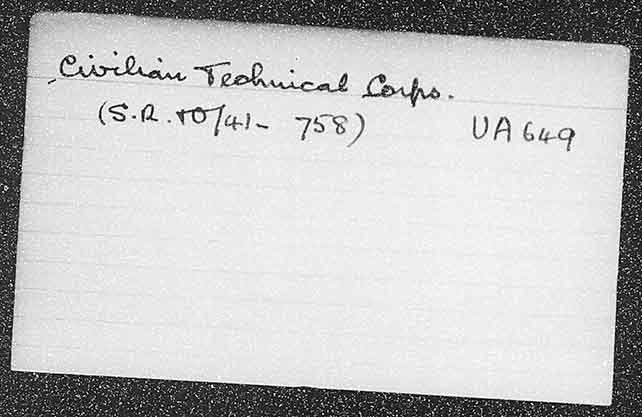 Civilian Technical Corps.
(S.R.+O/41- 758) UA649